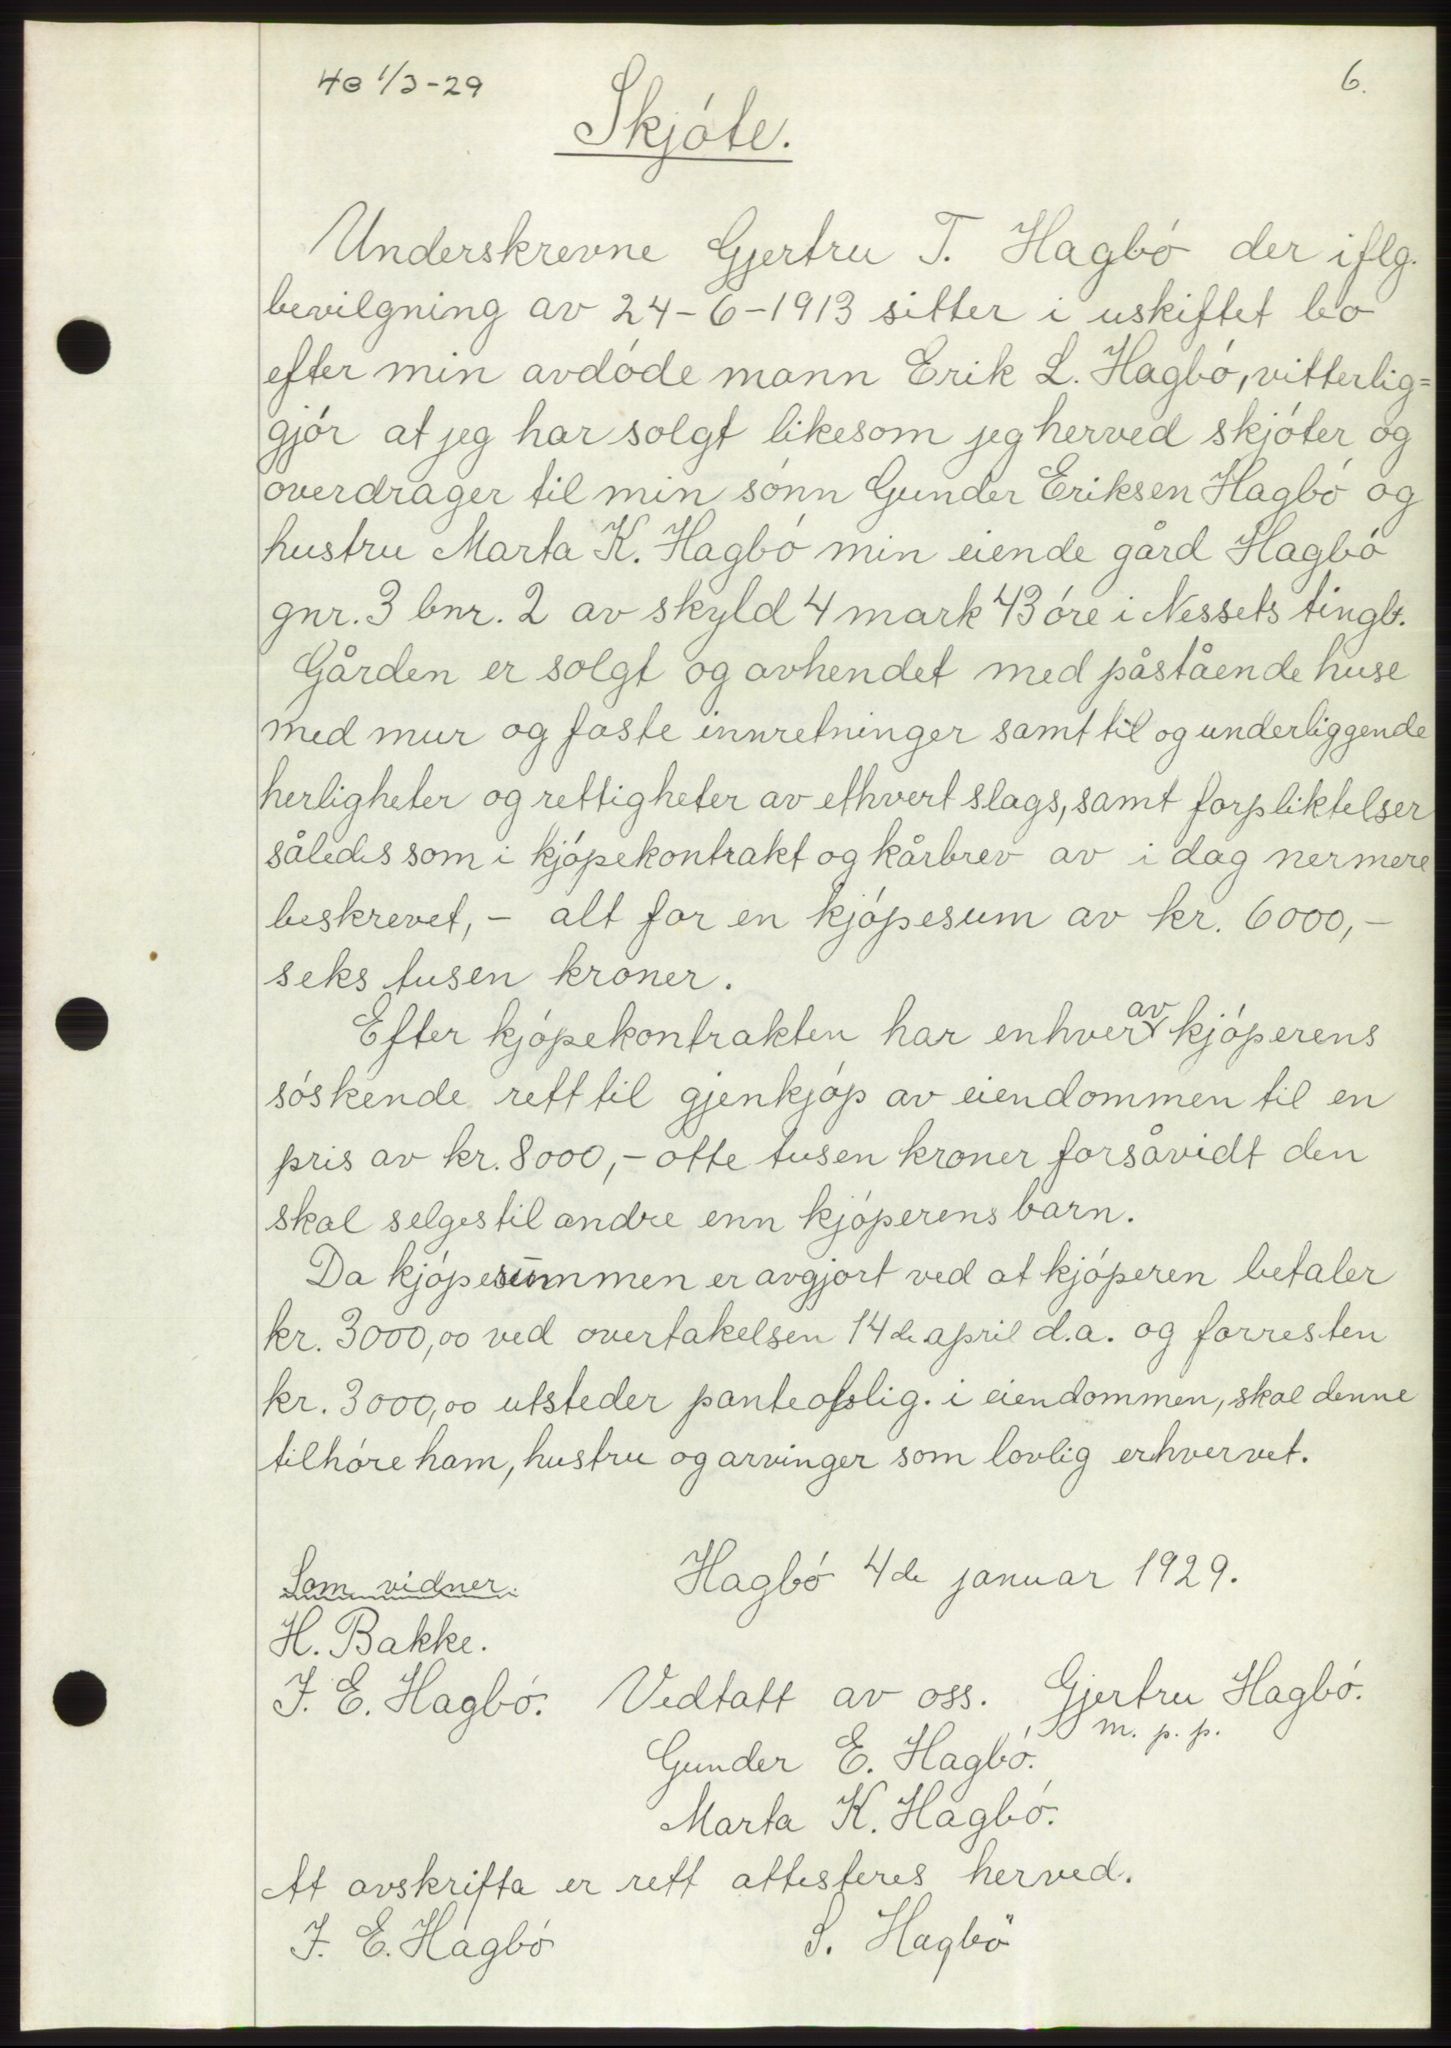 40 1/3-29
6.
Skjóte.
Underskrevne Gjertru T. Hagbó der iflg.
bevilgning av 24-6-1913 sitter i uskiftet bo
efter min avdóde mann Erik L. Hagbó, vitterlig=
gjór at jeg har solgt likesom jeg herved skjóter og
overdrager til min sónn Gunder Eriksen Hagbó og
hustru Marta K. Hagbó min eiende gård Hagbó
gnr. 3 bnr. 2 av skyld 4 mark 43 óre i Nessets tinglt.
Gården er solgt og avhendet med påstående huse
med mur og faste innretninger samt til og underliggende
herligheter og rettigheter av ethvert slags, samt forpliktelser
således som i kjópekontrakt og kårbrev av i dag nermere
beskrevet, - alt for en kjópesum av kr. 6000,-
seks tusen kroner.
Efter kjópekontrakten har enhver av kjóperens
sóskende rett til gjenkjóp av eiendommen til en
pris av kr. 8000,- otte tusen kroner forsåvidt den
skal selges til andre enn kjóperens barn.
Da kjópesummen er avgjort ved at kjóperen betaler
kr. 3000,00 ved overtakelsen 14de april d.a. og forresten
kr. 3000,00 utsteder panteobslig. i eiendommen, skal denne
tilhóre ham, hustru og arvinger som lovlig erhvervet.
Hagbó 4de januar 1929.
Som vidner.
H. Bakke.
J. E. Hagbó. Vedtatt av oss. Gjertru Hagbó.
m. p. p.
Gunder E. Hagbó.
Marta K. Hagbó.
At avskrifta er rett attesteres herved.
J. E. Hagbó S. Hagbö